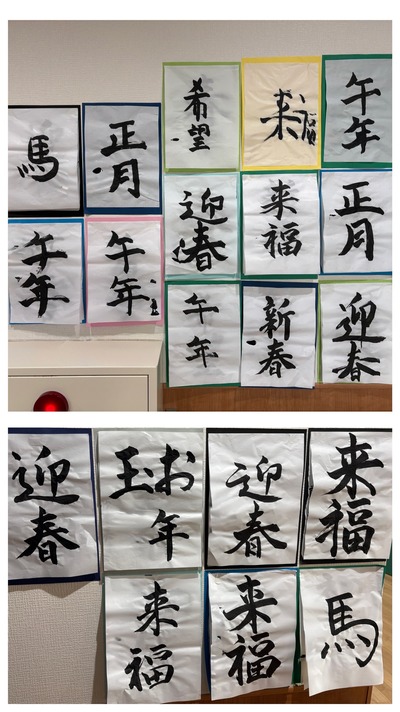 馬
正月
午年
午年
希望
来福
午年
迎春
来福
正月
午年
新春
迎春
迎春
お年玉
迎春
来福
来福
来福
馬